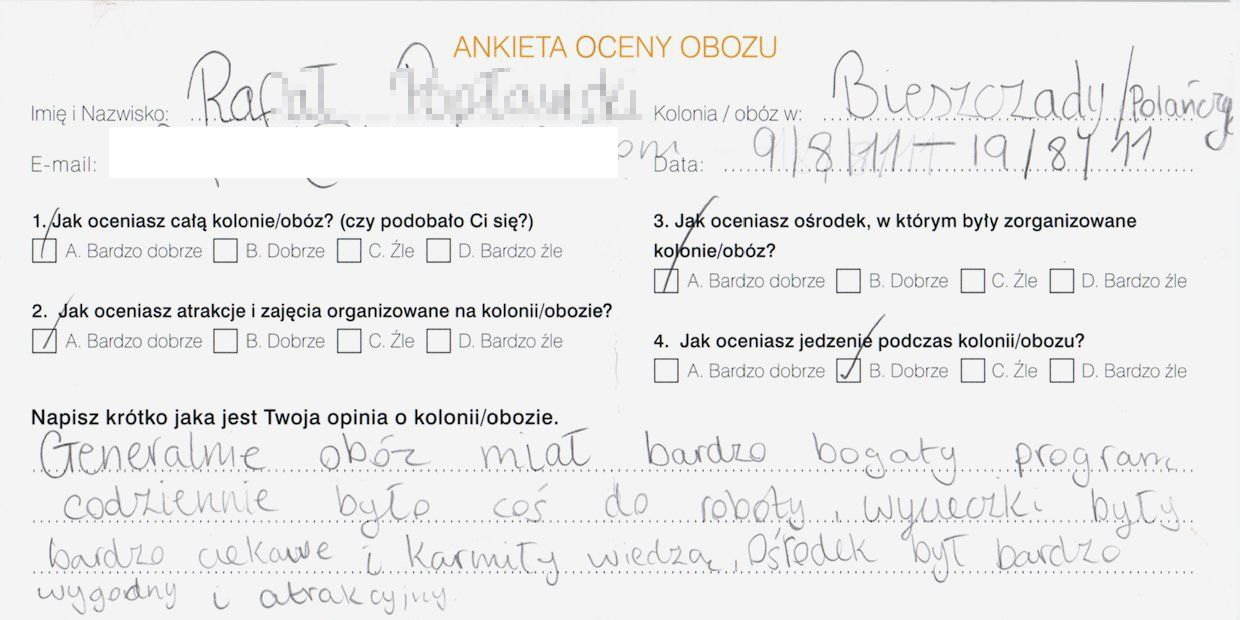 ANKIETA OCENY OBOZU
Imię i Nazwisko: Rafał
Kolonia / obóz w: Bieszczady/Polańczyk
E-mail:
Data: 9/8/11 – 19/8/11
1. Jak oceniasz całą kolonie/obóz? (czy podobało Ci się?)
A. Bardzo dobrze B. Dobrze C. Źle D. Bardzo źle
2. Jak oceniasz atrakcje i zajęcia organizowane na kolonii/obozie?
A. Bardzo dobrze B. Dobrze C. Źle D. Bardzo źle
3. Jak oceniasz ośrodek, w którym były zorganizowane
kolonie/obóz?
A. Bardzo dobrze B. Dobrze C. Źle D. Bardzo źle
4. Jak oceniasz jedzenie podczas kolonii/obozu?
A. Bardzo dobrze B. Dobrze C. Źle D. Bardzo źle
Napisz krótko jaka jest Twoja opinia o kolonii/obozie.
Generalnie obóz miał bardzo bogaty program,
codziennie było coś do roboty, wycieczki były
bardzo ciekawe i karmiły wiedzą, Ośrodek był bardzo
wygodny i atrakcyjny.